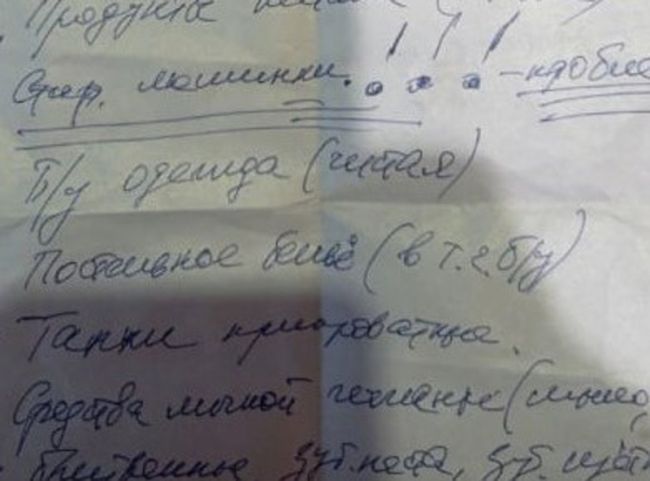 Продукты
Стир. машинки. !!! -
Б/у одежда (чистая)
Постельное бельё (в т.ч. б/у)
Тапки прикроватные.
Средства личной гигиены (мыло,
зуб. паста, зуб. щёт